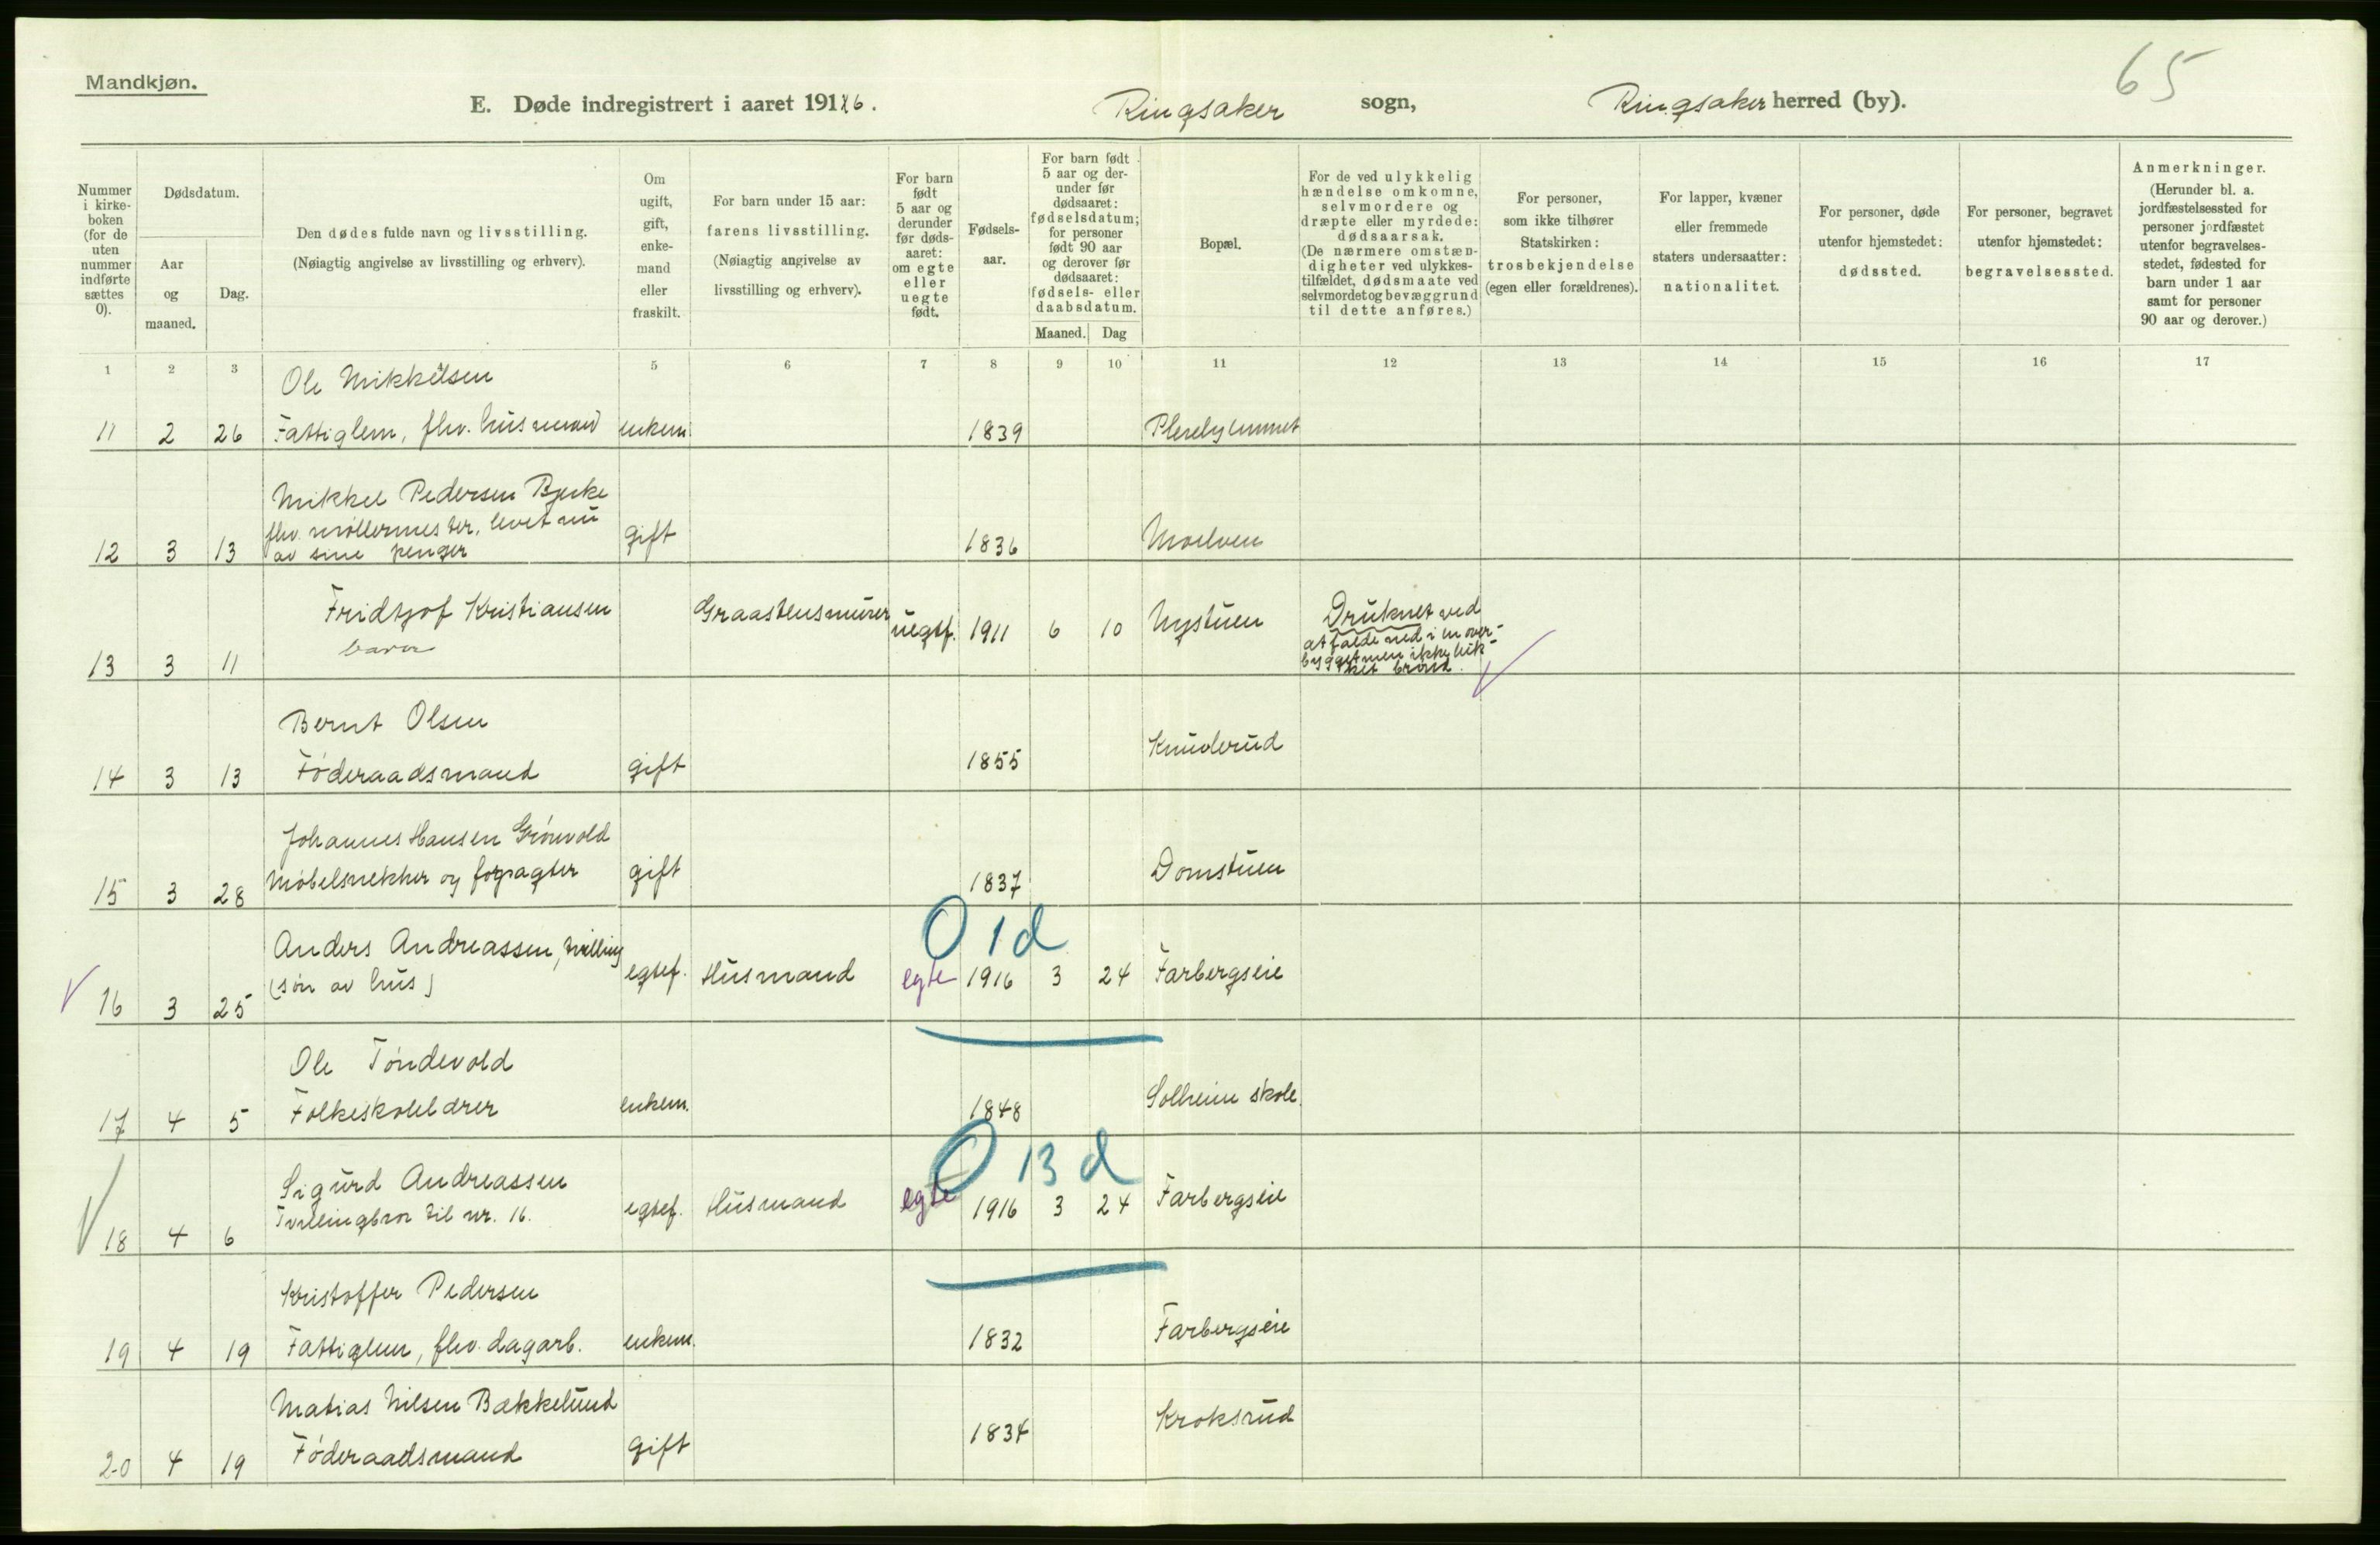 Mandkjøn.
65
E. Døde indregistrert i aaret 1916. Ringsaker sogn, Ringsaker herred (by).
Nummer i kirke-boken (for de uten nummer indførte sættes 0).
Dødsdatum.
Aar og maaned.
Dag.
Den dødes fulde navn og livsstilling.
(Nøiagtig angivelse av livsstilling og erhverv).
Om ugift, gift, enke-mand eller fraskilt.
For barn under 15 aar: farens livsstilling.
(Nøiagtig angivelse av livsstilling og erhverv).
For barn født 5 aar og derunder før døds-aaret: om egte eller uegte født.
Fødsels-aar.
For barn født 5 aar og der-under før dødsaaret: fødselsdatum; for personer født 90 aar og derover før dødsaaret: fødsels- eller daabsdatum.
Maaned. Dag
Bopæl.
For de ved ulykkelig hændelse omkomne, selvmordere og dræpte eller myrdede: dødsaarsak.
(De nærmere omstæn-digheter ved ulykkes-tilfældet, dødsmaate ved selvmordet og bevæggrund til dette anføres.)
For personer, som ikke tilhører Statskirken: trosbekjendelse (egen eller forældrenes).
For lapper, kvæner eller fremmede staters undersaatter: nationalitet.
For personer, døde utenfor hjemstedet: dødssted.
For personer, begravet utenfor hjemstedet: begravelsessted.
Anmerkninger.
(Herunder bl. a. jordfæstelsessted for personer jordfæstet utenfor begravelses-stedet, fødested for barn under 1 aar samt for personer 90 aar og derover.)
1 2 3 5 6 7 8 9 10 11 12 13 14 15 16 17
Ole Mikkelsen
11 2 26 Fattiglem, fhv. husmand enkem. 1839
Mikkel Pedersen Bjerke
fhv. møllermester, levet nu
12 3 13 av sine penger gift 1836 Moelven
Fridtjof Kristiansen Graastensmurer uegtef. 1911 6 10 Nystuen Druknet ved
barn at falde ned i en over-
bygget men ikke luk-
13 3 11 ket brønd.
Bernt Olsen
14 3 13 Føderaadsmand gift 1855 Knuderud
Johannes Hansen Grønvold
15 3 28 Møbelsnekker og forpagter gift 1837 Domstuen
0 1 d
Anders Andreassen, tvilling
(søn av hus)
16 3 25 egtef. Husmand egte 1916 3 24 Farbergseie
Ole Tøndevold
17 4 5 Folkeskolelærer enkem. 1848 Solheim skole
0 13 d
Sigurd Andreassen
Tvillingbror til nr. 16.
18 4 6 egtef. Husmand egte 1916 3 24 Farbergseie
Kristoffer Pedersen
19 4 19 Fattiglem, fhv. dagarb. enkem. 1832 Farbergseie
Matias Nilsen Bækkelund
20 4 19 Føderaadsmand gift 1834 Kroksrud